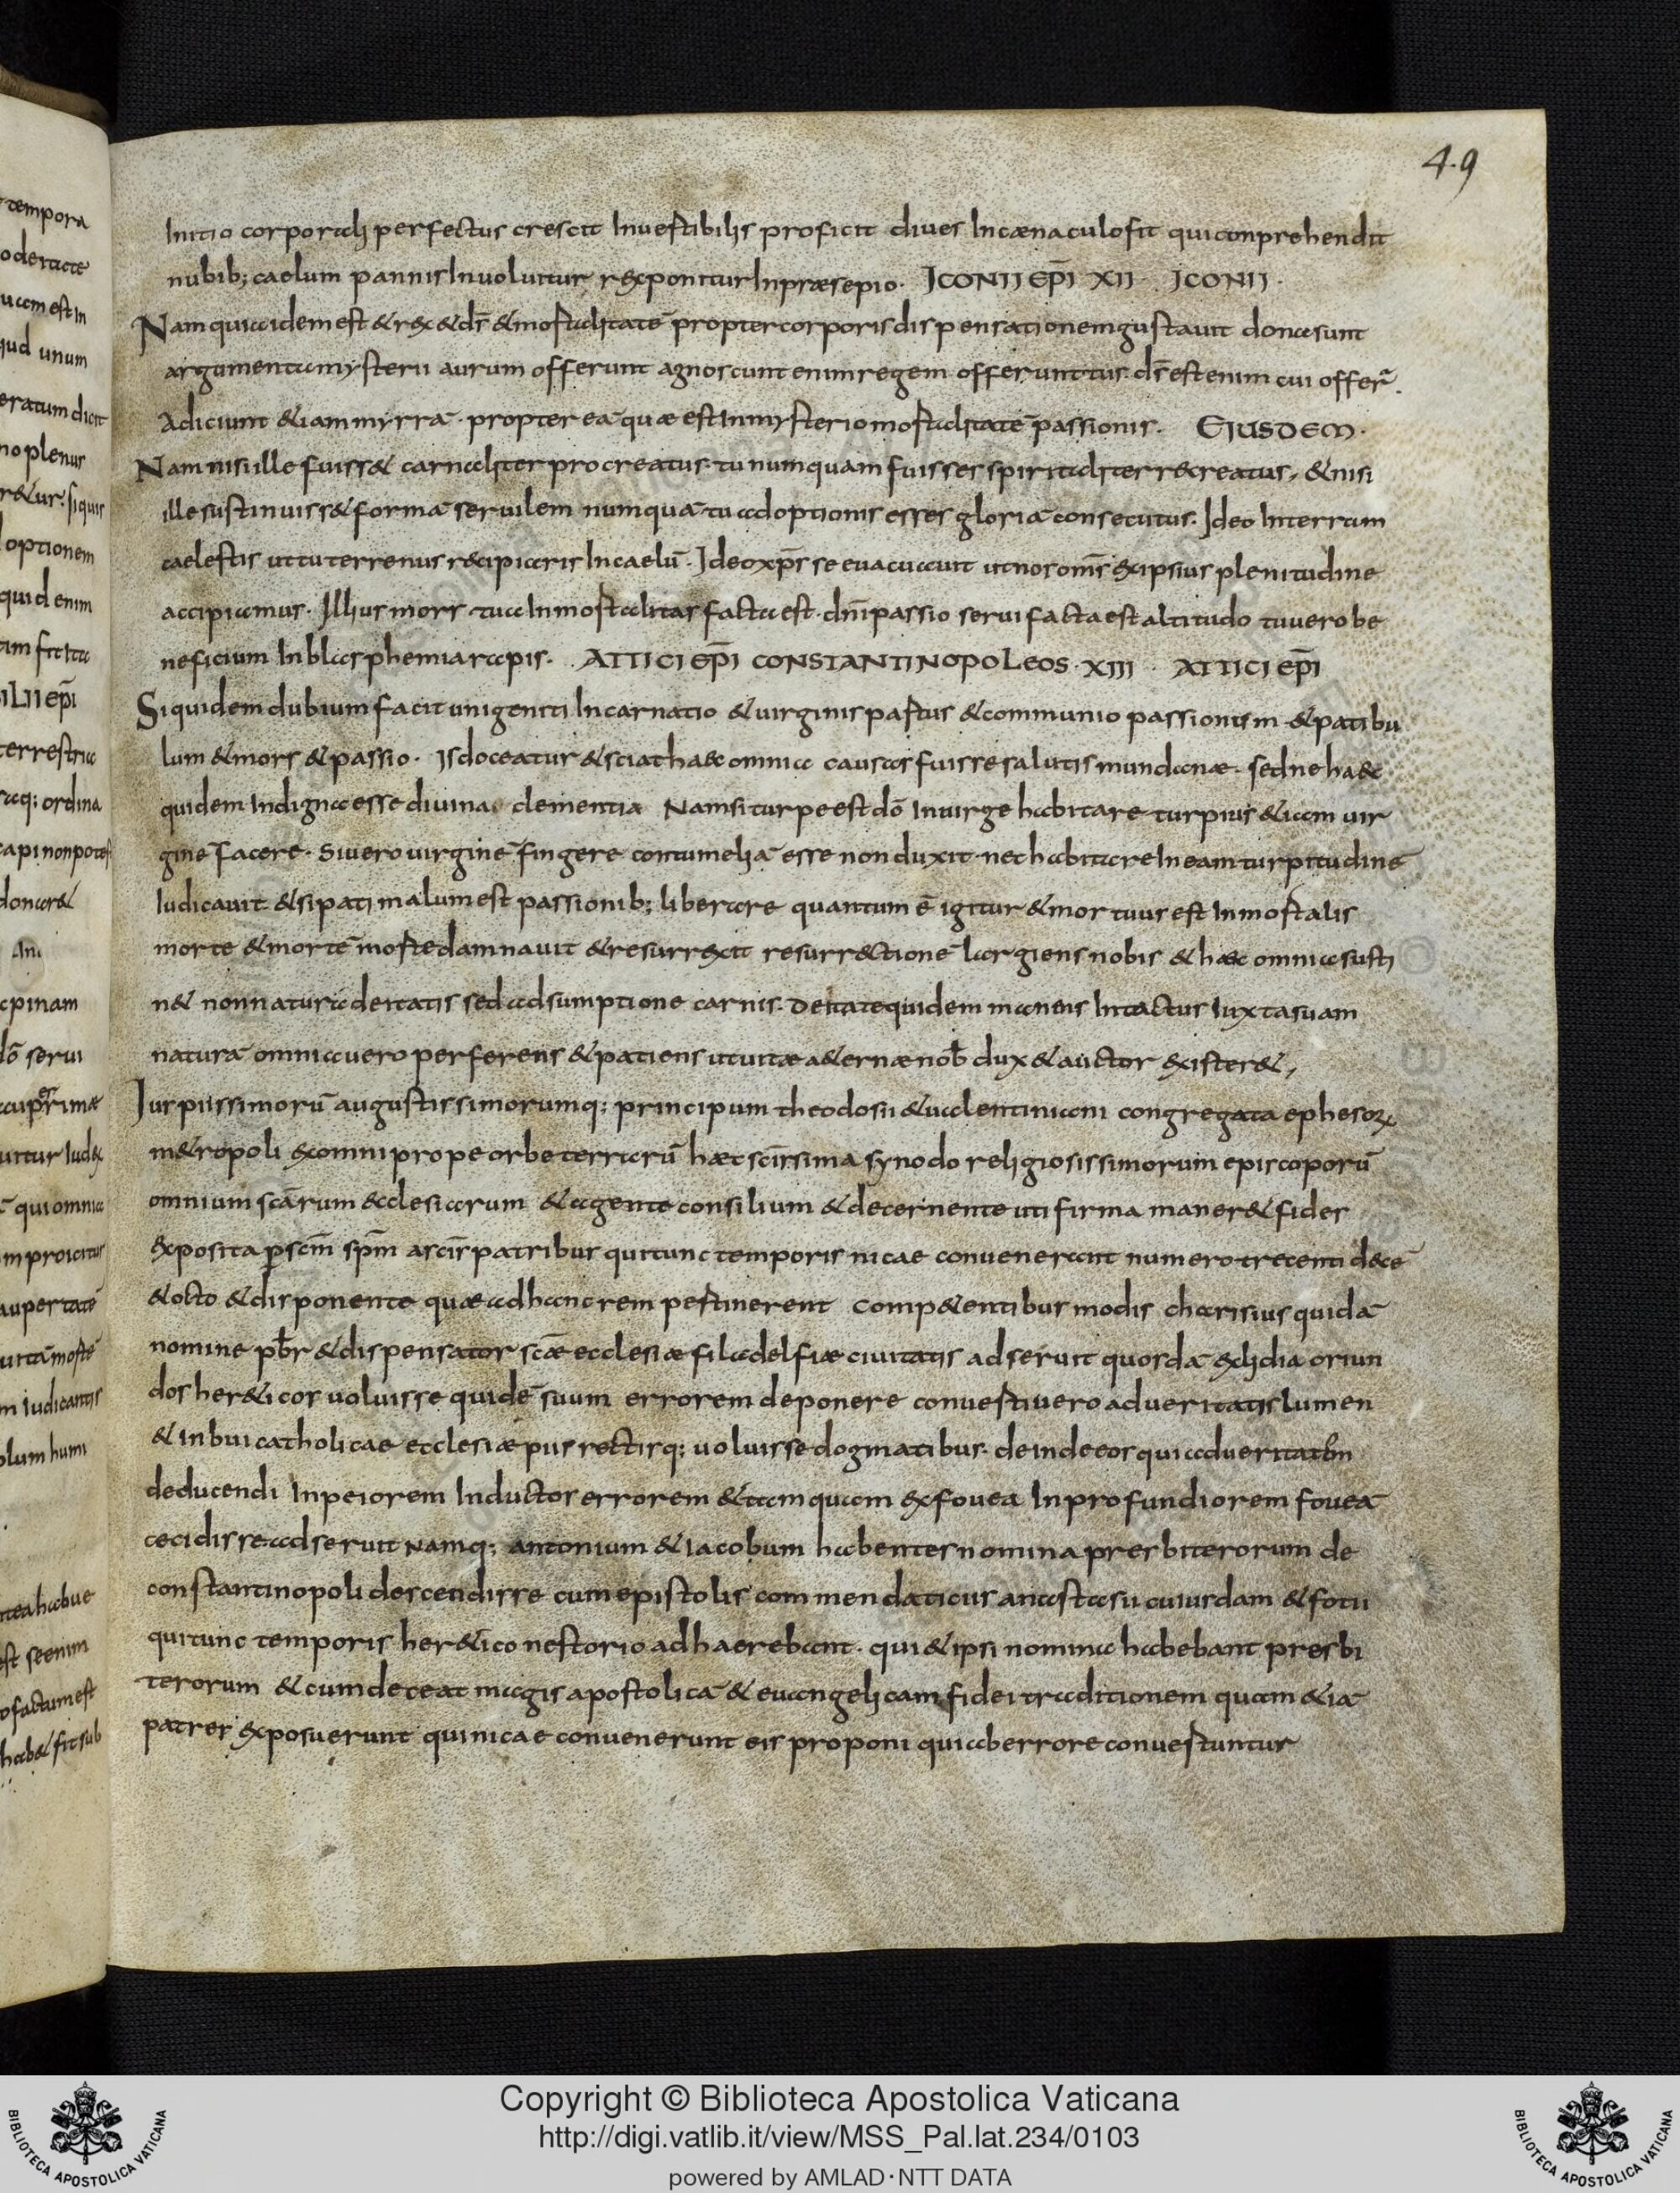 4.9
initio corporali perfectus crescit investibilis proficit dives in cænaculo fit qui conprehendit
nubib; caelum pannis involuitur rex ponitur in præsepio. ICONII EPĪ XII. ICONII.
Nam quia idem est & rex & d̄s & mortalitatē propter corporis dispensationem gustauit dona sunt
argumenta mysterii aurum offerunt agnoscunt enim regem offerunt tus. d̄s est enim cui offer̄.
Adiciunt & iam myrrā. propter ea quæ est in mysterio mortalitatē passionis. EIUSDEM.
Nam nisi ille fuiss& carnaliter procreatus. tu numquam fuisses spiritaliter recreatus, & nisi
ille sustinuiss& formā seruilem numquā tu adoptionis esses gloriā consecutus. Ideo in terram
caelestis ut tu terrenus recipiaris in caelū. Ideo xp̄s se euacuauit ut nos om̄s ex ipsius plenitudine
accipiamus. Illius mors tua inmortalitas facta est. dn̄i passio serui facta est altitudo tu uero be
neficium in blasphemia rapis. ATTICI EPĪ CONSTANTINOPOLEOS. XIII. ATTICI EPĪ
Si quidem dubium facit unigeniti incarnatio & uirginis partus & communio passionum & patibu
lum & mors & passio. is doceatur & sciat haec omnia causas fuisse salutis mundanæ. sed ne haec
quidem indigna esse diuina clementia Nam si turpe est dō in uirge habitare turpius & iam uir
ginē facere. Si uero uirginē fingere contumeliā esse non duxit. nec habitare in eam turpitudinē
iudicauit & si pati malum est passionib; liberare quantum ē igitur & mortuus est inmortalis
morte & mortē morte damnauit & resurrexit resurrectionē largiens nobis & haec omnia susti
n& non natura deitatis sed adsumptione carnis. deitate quidem manens intactus iuxta suam
naturā omnia uero perferens & patiens ut uitæ aeternæ nob̄ dux & auctor exister&,
Iur piissimorū augustissimorumq; principum theodosii & ualentiniani congregata ephesorꝝ
m&ropoli ex omni prope orbe terrarū haec sc̄issima synodo religiosissimorum episcoporū
omnium sc̄arum ecclesiarum & agente consilium & decernente uti firma maner& fides
exposita p sc̄m sp̄m a sc̄is patribus qui tunc temporis nicae convenerant numero trecenti decē
& octo & disponente quæ ad hanc rem pertinerent comp&entibus modis charisius quidā
nomine pb̄r & dispensator sc̄æ ecclesiæ filadelfiæ ciuitatis adseruit quosdā ex lidia oriun
dos her&icos uoluisse quidē suum errorem deponere conuerti uero ad ueritatis lumen
& inbui catholicae ecclesiæ piis rectisq; uoluisse dogmatibus. deinde eos qui ad ueritatem
deducendi in peiorem inductos errorem & tamquam ex fouea in profundiorem foueā
cecidisse adseruit namq; antonium & iacobum habentes nomina presbiterorum de
constantinopoli descendisse cum epistolis commendaticiis anastasii cuiusdam & fotii
qui tunc temporis her&ico nestorio adhaerebant. qui & ipsi nomina habebant presbi
terorum & cum deceat magis apostolicā & euangelicam fidei traditionem quam & iā
patres exposuerunt qui nicae convenerunt eis proponi qui ab errore conuertuntur
Copyright © Biblioteca Apostolica Vaticana
http://digi.vatlib.it/view/MSS_Pal.lat.234/0103
powered by AMLAD·NTT DATA
BIBLIOTECA APOSTOLICA VATICANA
BIBLIOTECA APOSTOLICA VATICANA